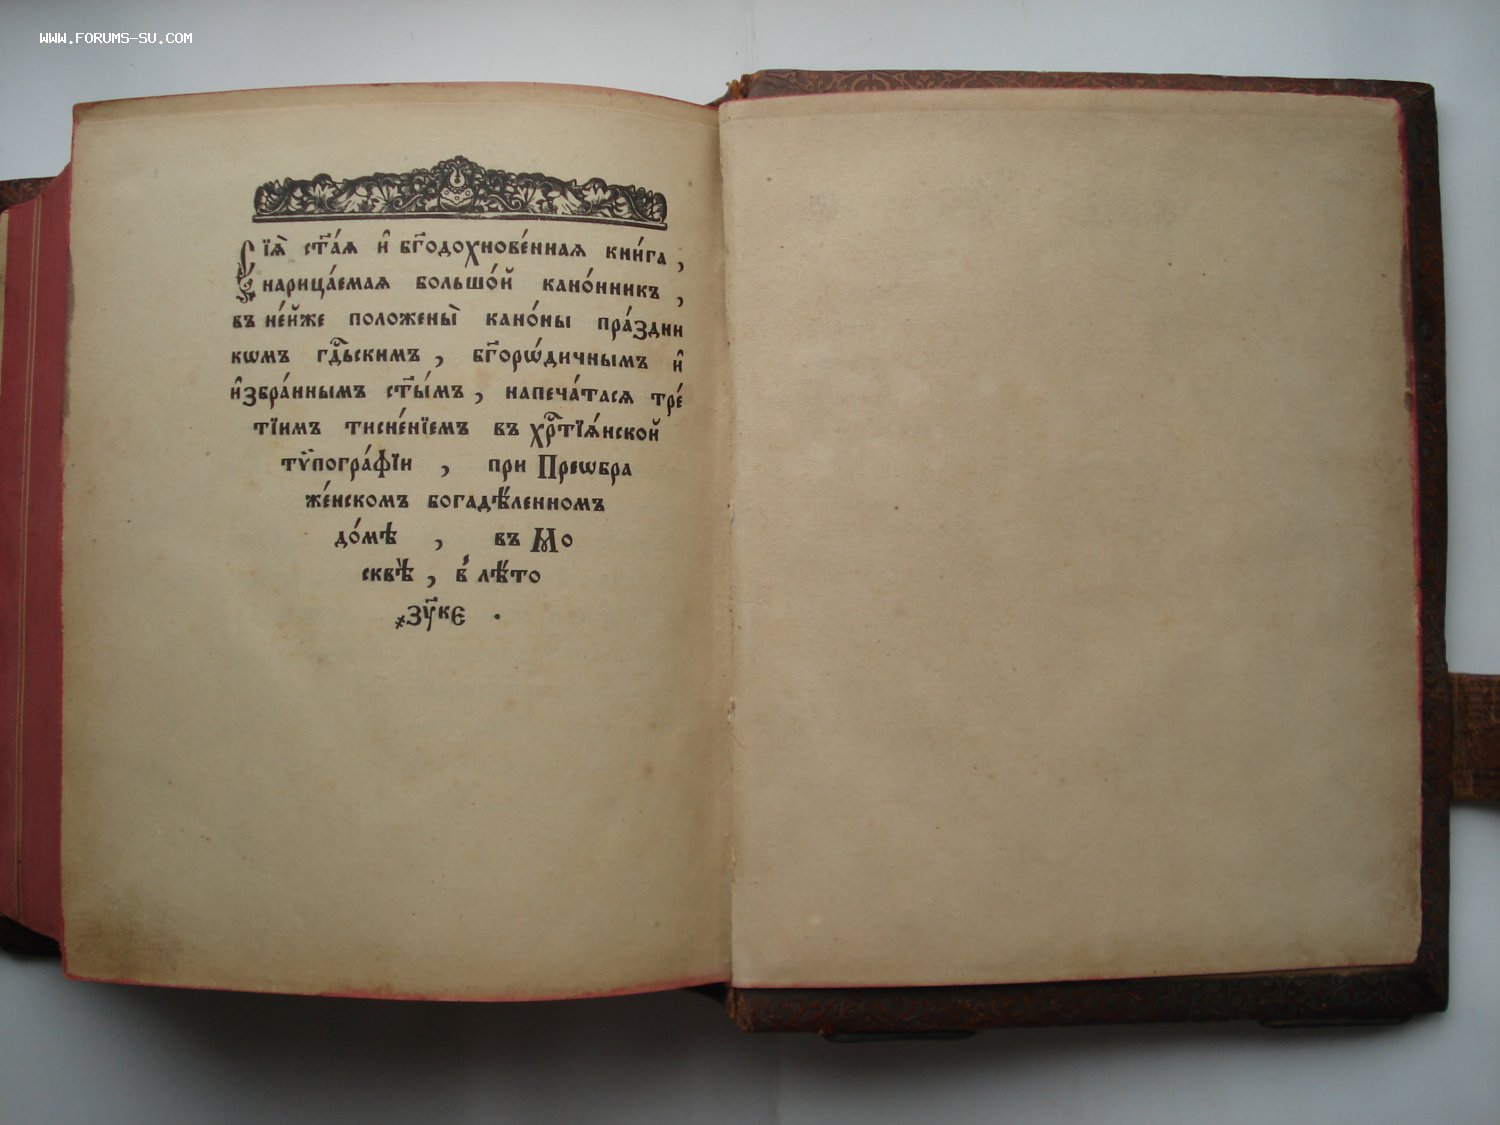 WWW.FORUMS-SU.COM
Сїѧ̀ ст҃а́ѧ и҆ бг҃одохнове́ннаѧ кни́га,
нарица́емаѧ большо́й кано́нникъ,
въ не́йже положены̀ кано́ны пра́здни
кѡмъ гдⷭ҇ьскимъ, бг҃орѡ́дичнымъ и҆
и҆збра́ннымъ ст҃ы́мъ, напеча́тасѧ тре́
тїимъ тисне́нїемъ въ хрⷭ҇тїѧ́нской
тѷпогра́фїи, при Преѡбра
же́нскомъ богадѣ́ленномъ
до́мѣ, въ Мо
сквѣ̀, в̾ лѣ́то
҂зу҃ке.